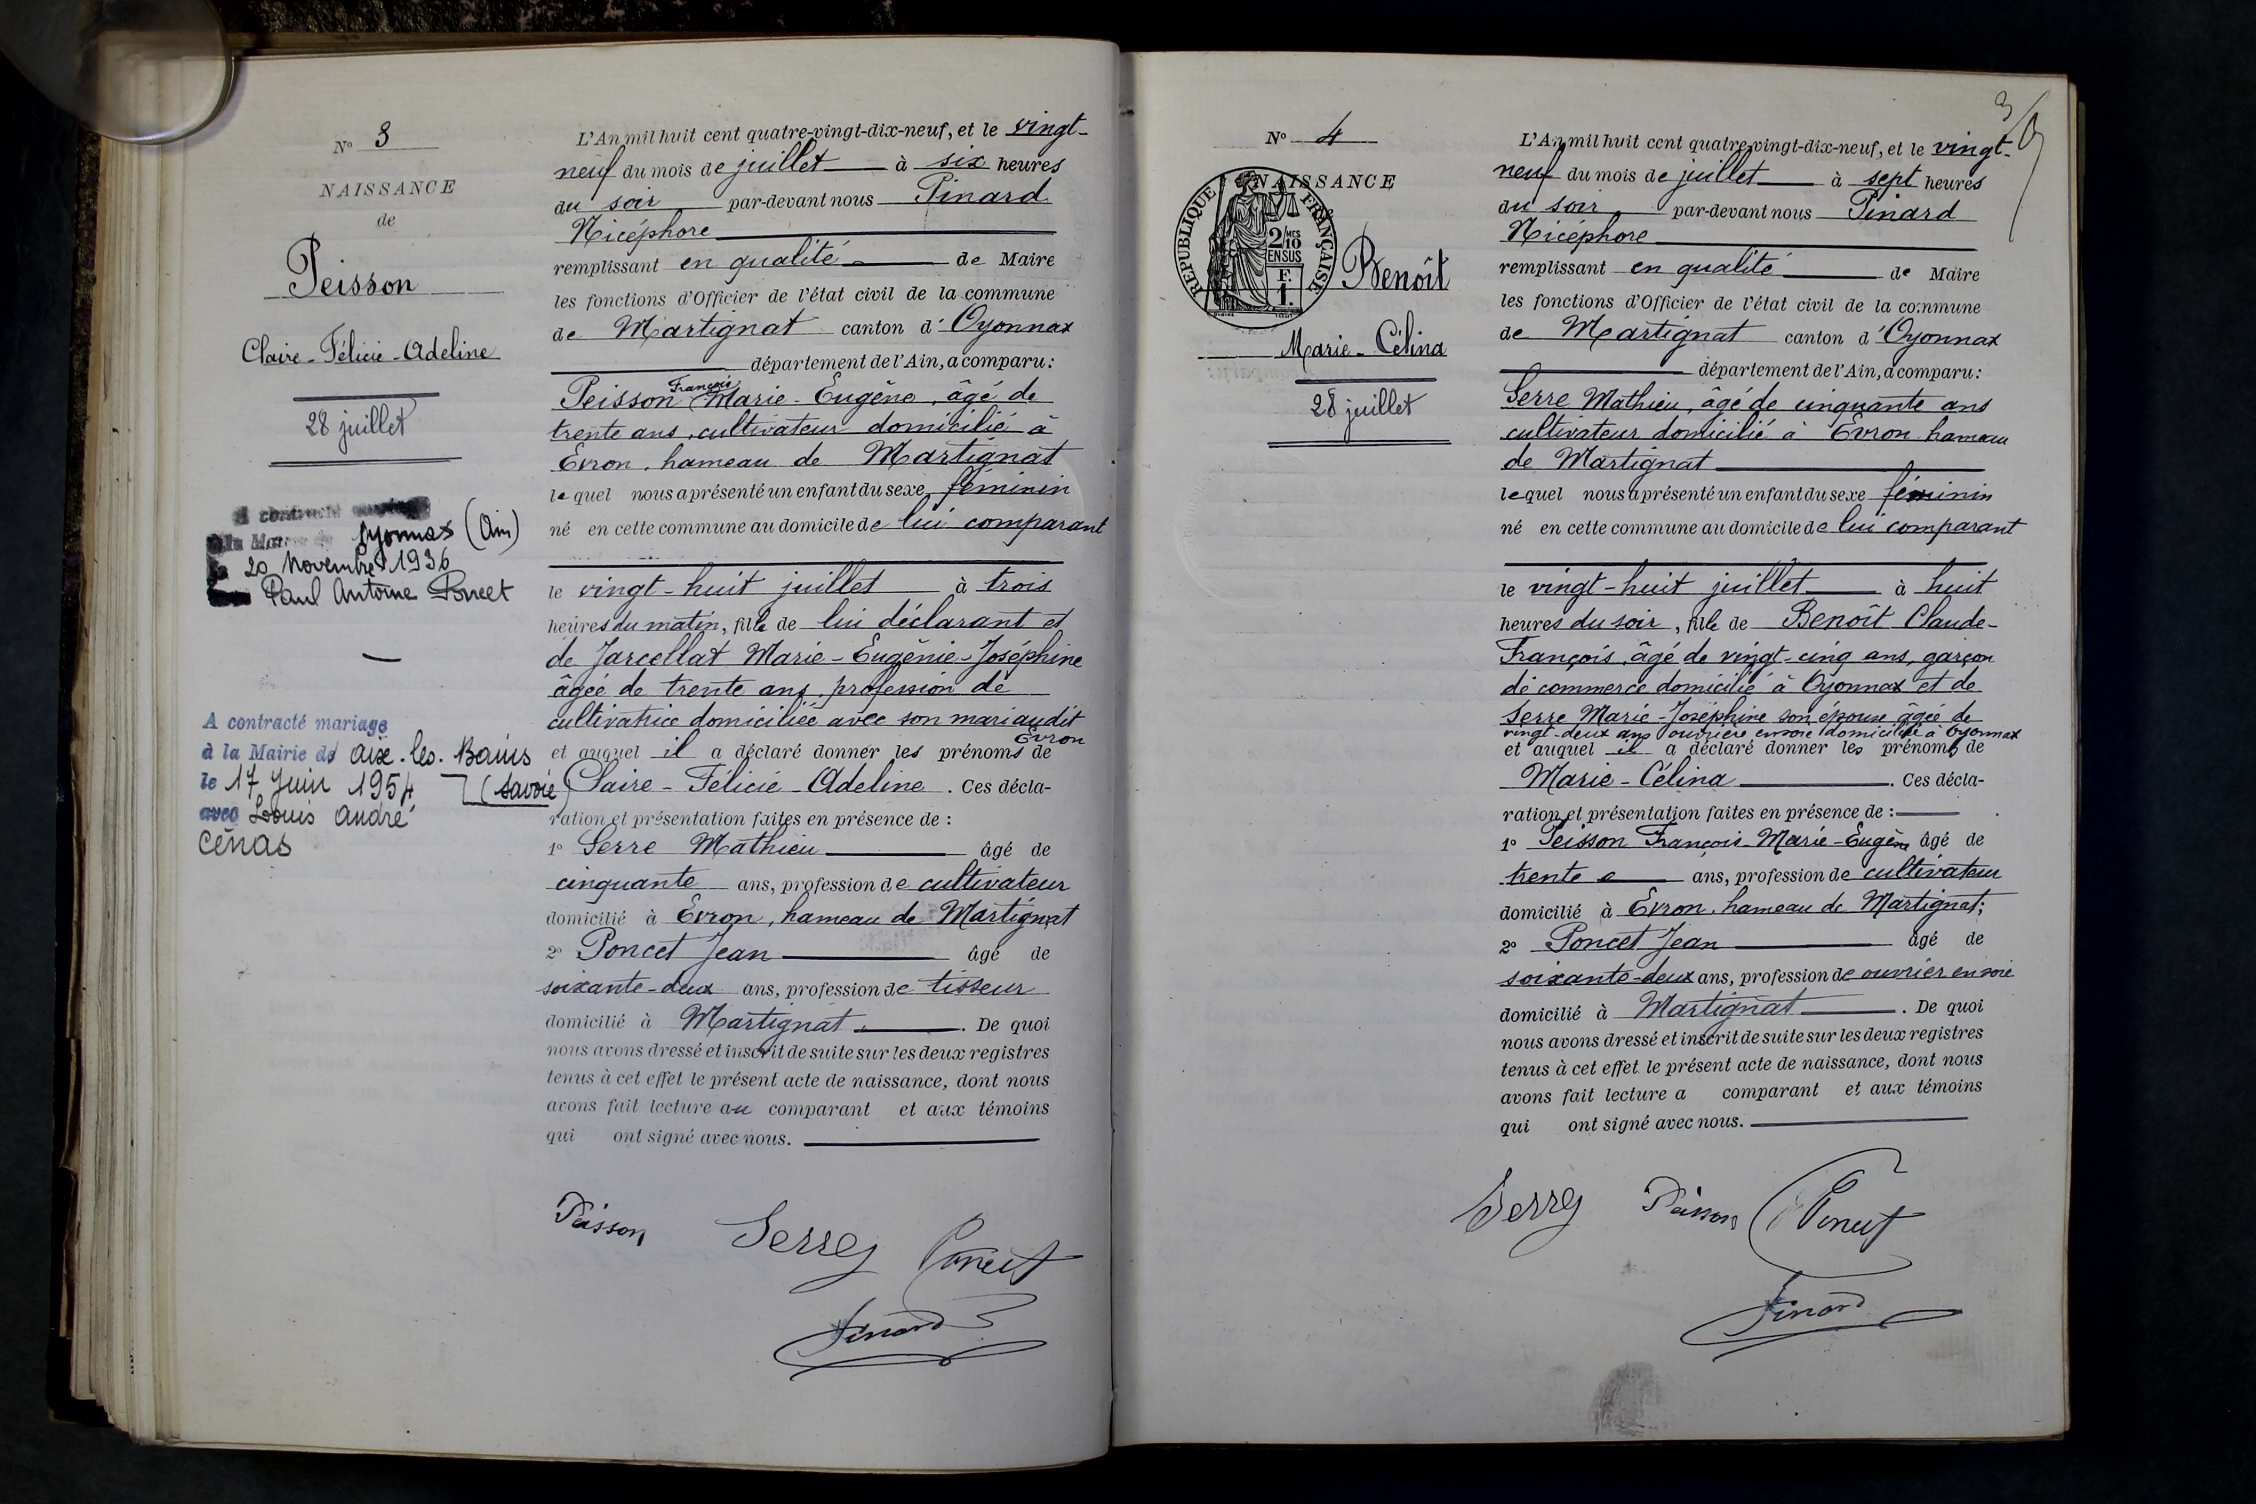 N° 3
NAISSANCE
de
Peisson
Claire-Félicie-Adeline
28 juillet
A contracté mariage
à la Mairie de Oyonnax (Ain)
le 20 Novembre 1936
Paul Antoine Poncet
A contracté mariage
à la Mairie de Aix-les-Bains
le 17 Juin 1954 (Savoie)
avec Louis André
Cénas
L'An mil huit cent quatre-vingt-dix-neuf, et le vingt-
neuf du mois de juillet à six heures
du soir par-devant nous Pinard
Nicéphore
remplissant en qualité de Maire
les fonctions d'Officier de l'état civil de la commune
de Martignat canton d'Oyonnax
département de l'Ain, a comparu:
Peisson François Marie-Eugène, âgé de
trente ans, cultivateur domicilié à
Evron, hameau de Martignat
lequel nous a présenté un enfant du sexe féminin
né en cette commune au domicile de lui comparant
le vingt-huit juillet à trois
heures du matin, fille de lui déclarant et
de Jarcellat Marie-Eugénie-Joséphine
âgée de trente ans, profession de
cultivatrice domiciliée avec son mari audit
Evron
et auquel il a déclaré donner les prénoms de
Claire-Félicie-Adeline. Ces décla-
ration et présentation faites en présence de :
1° Serre Mathieu âgé de
cinquante ans, profession de cultivateur
domicilié à Evron, hameau de Martignat
2° Poncet Jean âgé de
soixante-deux ans, profession de tisseur
domicilié à Martignat. De quoi
nous avons dressé et inscrit de suite sur les deux registres
tenus à cet effet le présent acte de naissance, dont nous
avons fait lecture au comparant et aux témoins
qui ont signé avec nous.
Peisson Serre Poncet
Pinard
3
N° 4
NAISSANCE
REPUBLIQUE FRANÇAISE
2/10 MES
EN SUS
F.
1.
Benoît
Marie-Célina
28 juillet
L'An mil huit cent quatre-vingt-dix-neuf, et le vingt-
neuf du mois de juillet à sept heures
du soir par-devant nous Pinard
Nicéphore
remplissant en qualité de Maire
les fonctions d'Officier de l'état civil de la commune
de Martignat canton d'Oyonnax
département de l'Ain, a comparu:
Serre Mathieu, âgé de cinquante ans
cultivateur domicilié à Evron hameau
de Martignat
lequel nous a présenté un enfant du sexe féminin
né en cette commune au domicile de lui comparant
le vingt-huit juillet à huit
heures du soir, fille de Benoît Claude-
François, âgé de vingt-cinq ans, garçon
de commerce domicilié à Oyonnax et de
Serre Marie-Joséphine son épouse âgée de
vingt-deux ans ouvrière en soie domiciliée à Oyonnax
et auquel il a déclaré donner les prénoms de
Marie-Célina. Ces décla-
ration et présentation faites en présence de :
1° Peisson François-Marie-Eugène âgé de
trente ans, profession de cultivateur
domicilié à Evron, hameau de Martignat;
2° Poncet Jean âgé de
soixante-deux ans, profession de ouvrier en soie
domicilié à Martignat. De quoi
nous avons dressé et inscrit de suite sur les deux registres
tenus à cet effet le présent acte de naissance, dont nous
avons fait lecture a comparant et aux témoins
qui ont signé avec nous.
Serre Peisson Poncet
Pinard